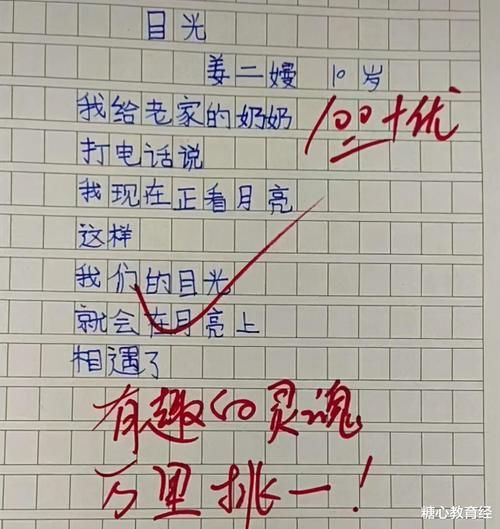 目光
姜二嫚 10岁
100+优
我给老家的奶奶
打电话说
我现在正看月亮
这样
我们的目光
就会在月亮上
相遇了
有趣的灵魂
万里挑一！
糖心教育经